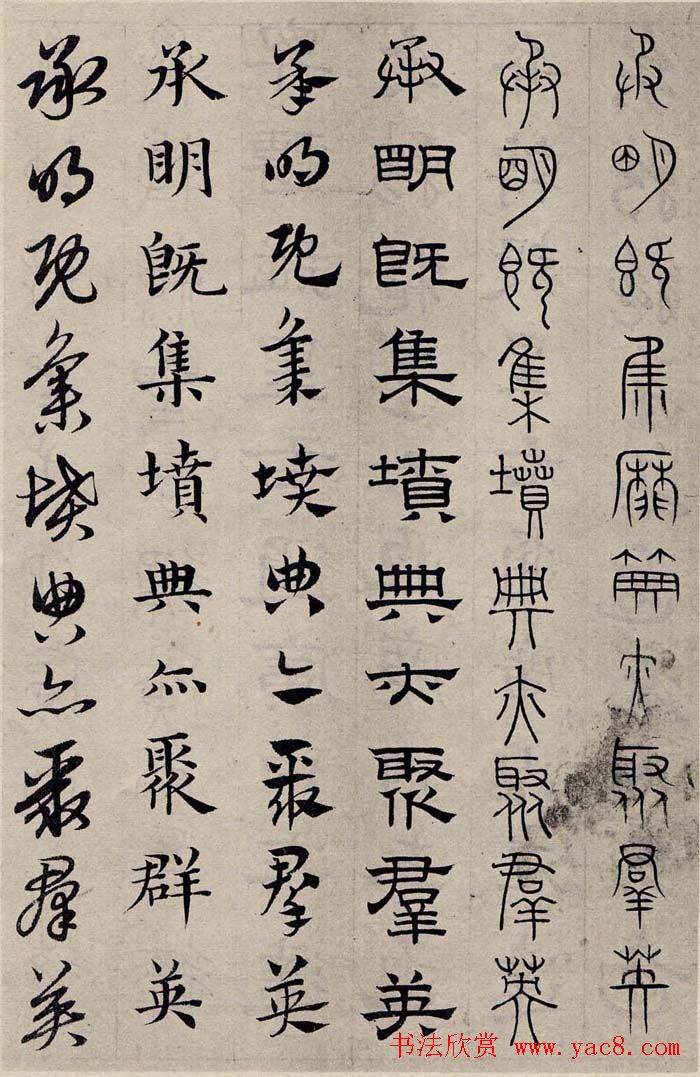 承明既集墳典亦聚群英
承明既集墳典亦聚群英
承明既集墳典亦聚羣英
承明既集墳典亦聚群英
承明既集墳典亦聚群英
承明既集墳典亦聚群英
书法欣赏 www.yac8.com